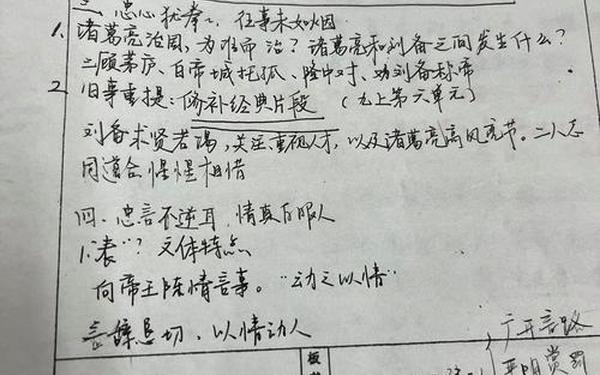 三、忠心犹奉二，往事未如烟
1、诸葛亮治国，为谁而治？诸葛亮和刘备之间发生什么？
三顾茅庐、白帝城托孤、隆中对、劝刘备称帝
2、旧事重提：修补经典片段（九上第六单元）
刘备求贤若渴，关注重视人才，以及诸葛亮高风亮节。二人志
同道合惺惺相惜
四、忠言不逆耳，情真自服人
1."表"？文体特点
向帝王陈情言事。"动之以情"
言辞恳切，以情动人
广开言路
严明赏罚
板